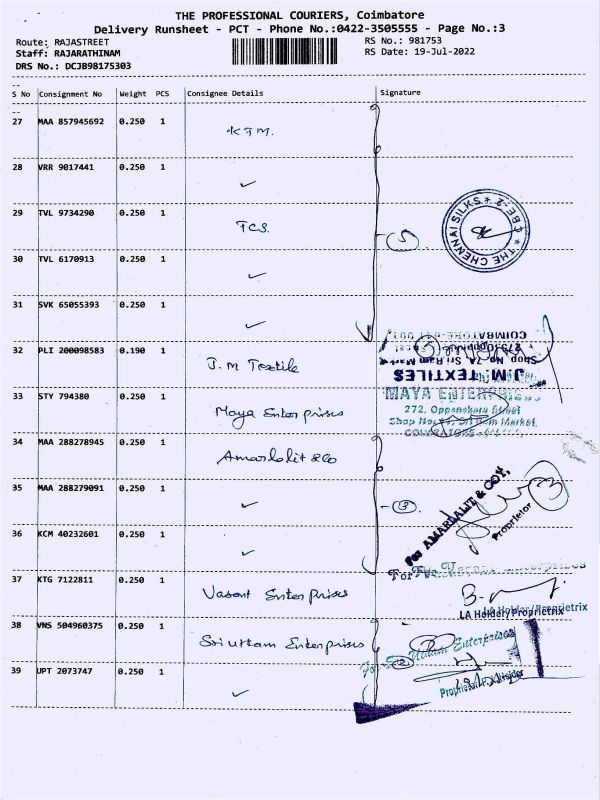 THE PROFESSIONAL COURIERS, Coimbatore
Delivery Runsheet - PCT - Phone No.:0422-3505555 - Page No.:3
Route: RAJASTREET RS No.: 981753
Staff: RAJARATHINAM RS Date: 19-Jul-2022
DRS No.: DCJB98175303
S No Consignment No Weight PCS Consignee Details Signature
27 MAA 857945692 0.250 1 KTM.
28 VRR 9017441 0.250 1 ✓
29 TVL 9734290 0.250 1 TCS. 5
THE CHENNAI SILKS * CBE-2 *
30 TVL 6170913 0.250 1 ✓
31 SVK 65055393 0.250 1 ✓
32 PLI 200098583 0.190 1 J.M Textile
J.M. TEXTILES
Shop No. 7A Sri Ram Market
COIMBATORE
33 STY 794380 0.250 1 Maya Enterprises
MAYA ENTERPRISES
272, Oppanakara Street
34 MAA 288278945 0.250 1 Amarlalit & Co
35 MAA 288279091 0.250 1 ✓ 3
For AMARLALIT & COY,
Proprietor
36 KCM 40232601 0.250 1 ✓
37 KTG 7122811 0.250 1 Vasant Enterprises
LA Holder/Proprietrix
38 VNS 504960375 0.250 1 Sri Uttam Enterprises
For Sri Uttam Enterprises
39 UPT 2073747 0.250 1 ✓